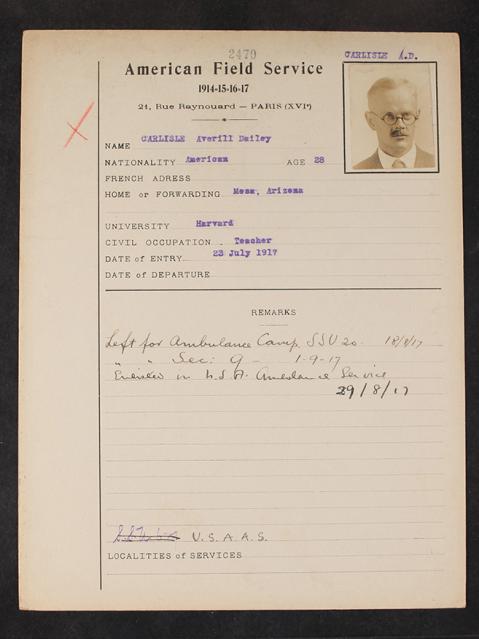 2470
CARLISLE A.D.
American Field Service
1914-15-16-17
21, Rue Raynouard — PARIS (XVIe)
NAME CARLISLE Averill Dailey
NATIONALITY American AGE 28
FRENCH ADRESS
HOME or FORWARDING Mesa, Arizona
UNIVERSITY Harvard
CIVIL OCCUPATION Teacher
DATE of ENTRY 23 July 1917
DATE of DEPARTURE
REMARKS
Left for Ambulance Camp, SSU 20. 18/8/17
" " Sec: 9 - 1-9-17
Enlisted in U.S.A. Ambulance Service
29/8/17
U.S.A.A.S.
LOCALITIES of SERVICES